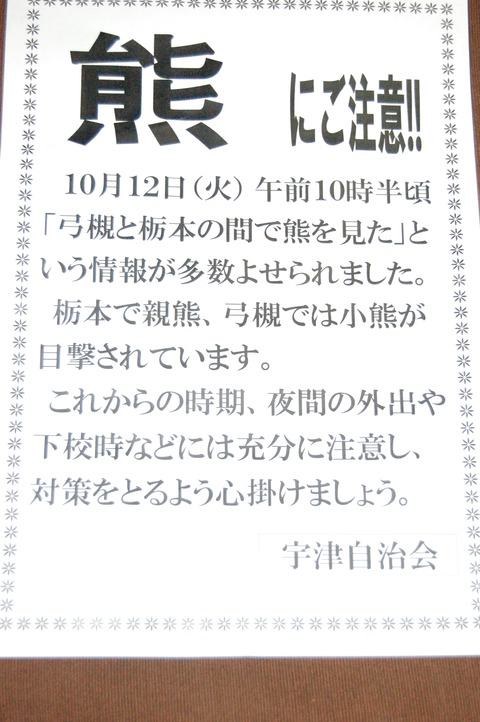 熊 にご注意!!
10月12日(火) 午前10時半頃
「弓槻と栃本の間で熊を見た」と
いう情報が多数よせられました。
栃本で親熊、弓槻では小熊が
目撃されています。
これからの時期、夜間の外出や
下校時などには充分に注意し、
対策をとるよう心掛けましょう。
宇津自治会